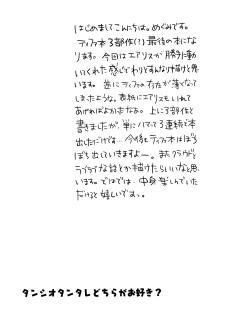 はじめましてこんちは。めぐみです。
ティファ本3部作(!)最後の本にな
ります。今回はエアリスが勝手に動
いてくれた感じでわりとすんなり描けたと思
います。逆にティファの存在が薄くなって
しまったような。表紙にエアリスもいれて
あげればよかったかなぁ。上に3部作と
書きましたが、単にハマって3連続で本
出しただけです…今後もティファ本はぼち
ぼち出していきますよー。またクラウドと
ラブラブな話とか描けたらいいなと思
います。ではでは、中身楽しんでいた
だけると嬉しいでっす。
タンシオタンタレどちらがお好き?